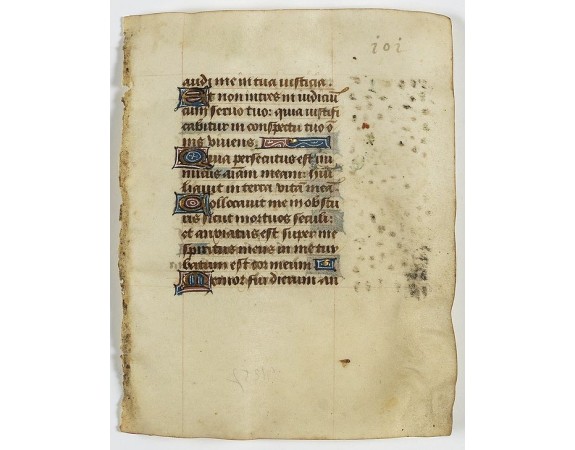 101
audi me in tua iusticia.
Et non intres in iudiciũ
cum servo tuo: quia iustifi
cabitur in conspectu tuo õ
nis vivens
Quia persecutus est ini
micus aĩam meam: hũi
liavit in terra vitã meã
Collocavit me in obscu
ris sicut mortuos seculi:
et anxiatus est super me
spiritus meus in me tur
batum est cor meum
Memor fui dierum an